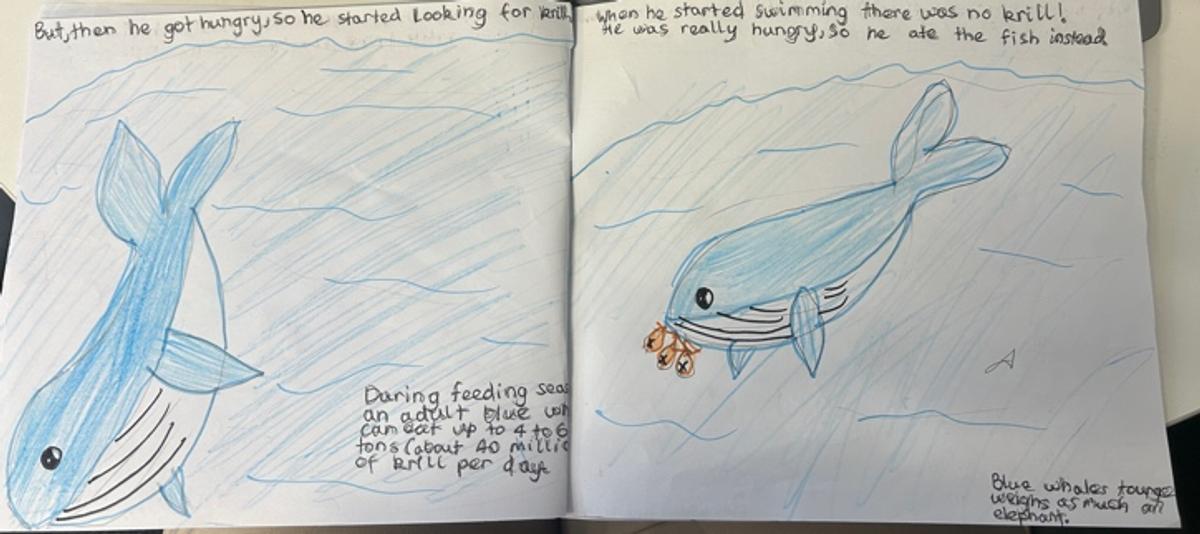 But, then he got hungry, so he started Looking for krill
During feeding seas
an adult blue wh
can eat up to 4 to 6
tons (about 40 millio
of krill per day
when he started swimming there was no krill!
He was really hungry, so he ate the fish instead
Blue whales tounge
weighs as much an
elephant.